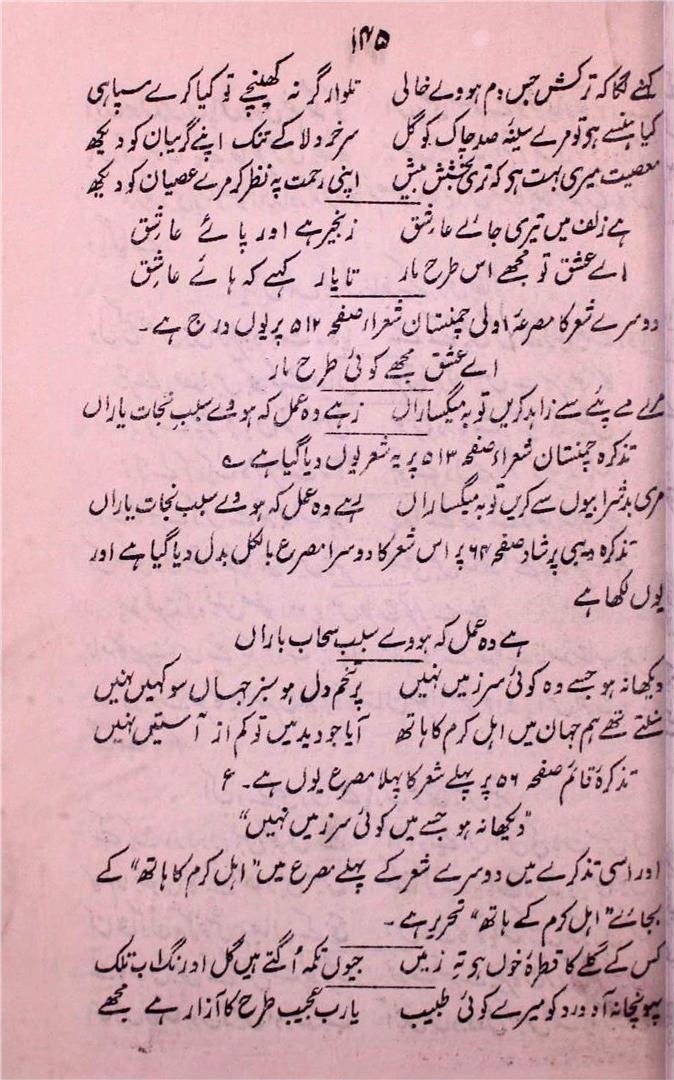 ۱۴۵
کہنے لگا کہ ترکش جس دم ہووے خالی تلوار گر نہ کھینچے تو کیا کرے سپاہی
کیا ہنسے ہو تو مرے سینۂ صد چاک کو گل سر خرد لا کے تنک اپنے گریبان کو دیکھ
معصیت میری بہت ہو کہ تری بخشش بیش اپنی رحمت پہ نظر کر مرے عصیان کو دیکھ
ہے زلف میں تیری جائے عاشق زنجیر ہے اور پائے عاشق
اے عشق تو مجھے اس طرح مار تا یار کہے کہ ہائے عاشق
دوسرے شعر کا مصرعۂ اولی چمنستان شعراء صفحہ ۵۱۲ پر یوں درج ہے۔
اے عشق مجھے کوئی طرح مار
مرے مے پئے سے زاہد کریں توبہ میگساراں زہے وہ عمل کہ ہووے سبب نجات یاراں
تذکرہ چمنستان شعراء صفحہ ۵۱۳ پر یہ شعر یوں دیا گیا ہے
مری بد شرابیوں سے کریں توبہ میگساراں رہے وہ عمل کہ ہووے سبب نجات یاراں
تذکرہ دیبی پرشاد صفحہ ۶۴ پر اس شعر کا دوسرا مصرع بالکل بدل دیا گیا ہے اور
یوں لکھا ہے
ہے وہ عمل کہ ہووے سبب سحاب باراں
دیکھا نہ ہو جسے وہ کوئی سرزمیں نہیں پر تخم دل ہو سبز جہاں سو کہیں نہیں
سنتے تھے ہم جہان میں اہل کرم کا ہاتھ آیا جو دید میں تو کم از آستیں نہیں
تذکرۂ قائم صفحہ ۵۶ پر پہلے شعر کا پہلا مصرع یوں ہے۔ ع
"دیکھا نہ ہو جسے میں کوئی سرزمیں نہیں"
اور اسی تذکرے میں دوسرے شعر کے پہلے مصرع میں "اہل کرم کا ہاتھ" کے
بجائے "اہل کرم کے ہاتھ" تحریر ہے۔
کس کے گلے کا قطرۂ خوں ہو تہِ زمیں جیوں تکمہ اُگتے ہیں گل اورنگ اب تلک
پہونچا نہ آہ درد کو میرے کوئی طبیب یارب عجیب طرح کا آزار ہے مجھے